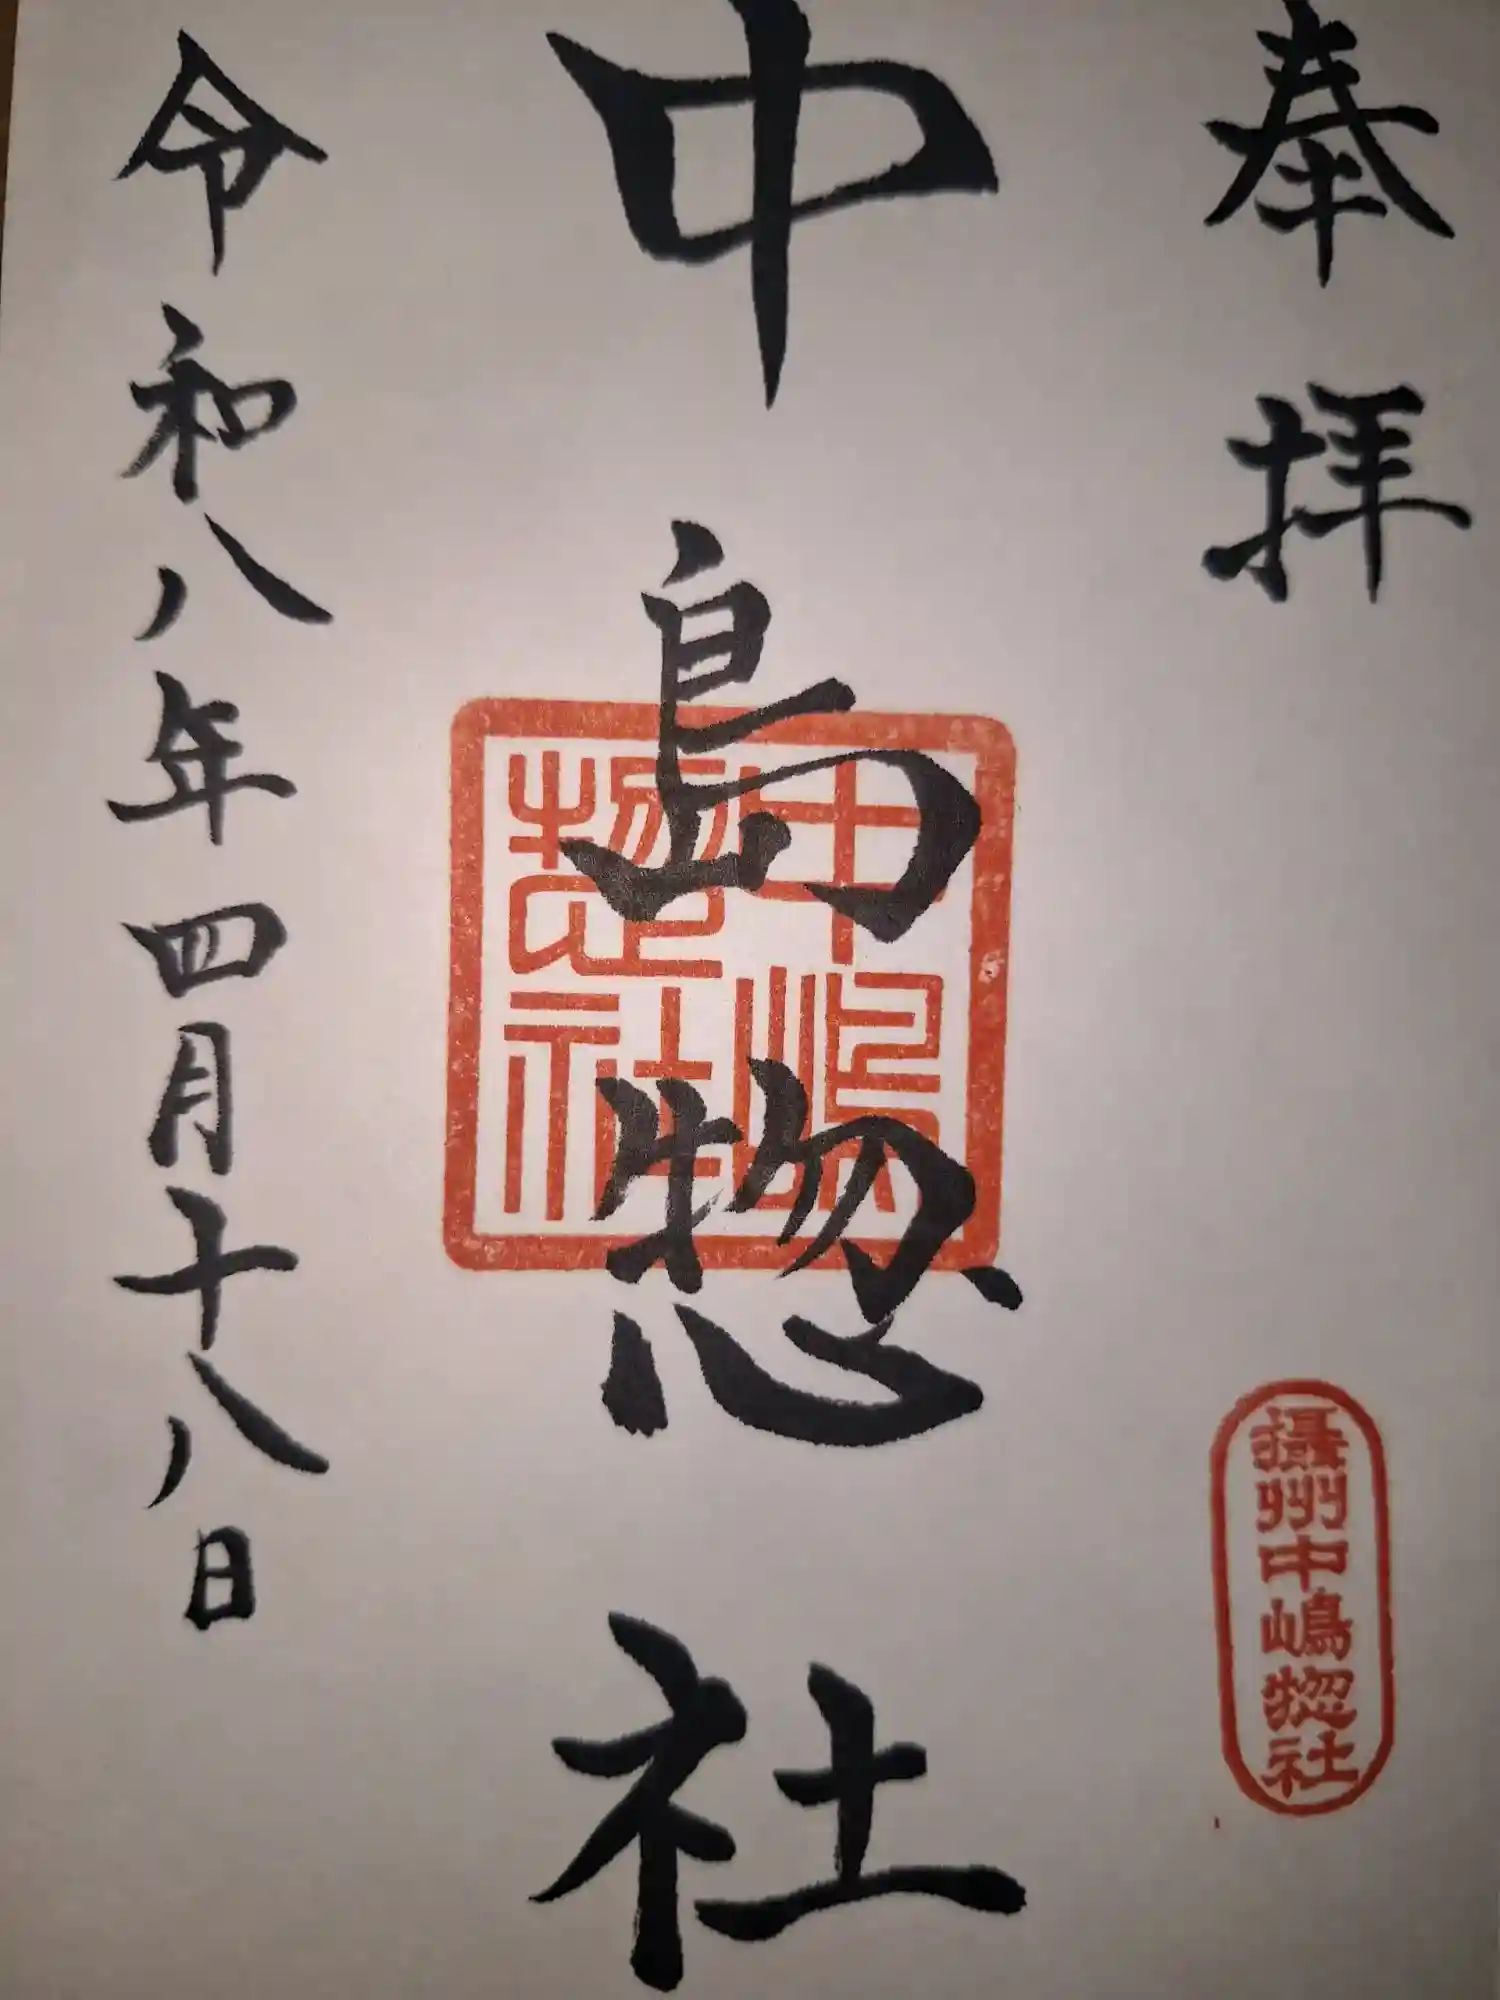 奉拝
攝州中嶋惣社
中島惣社
中嶋惣社
令和八年四月十八日